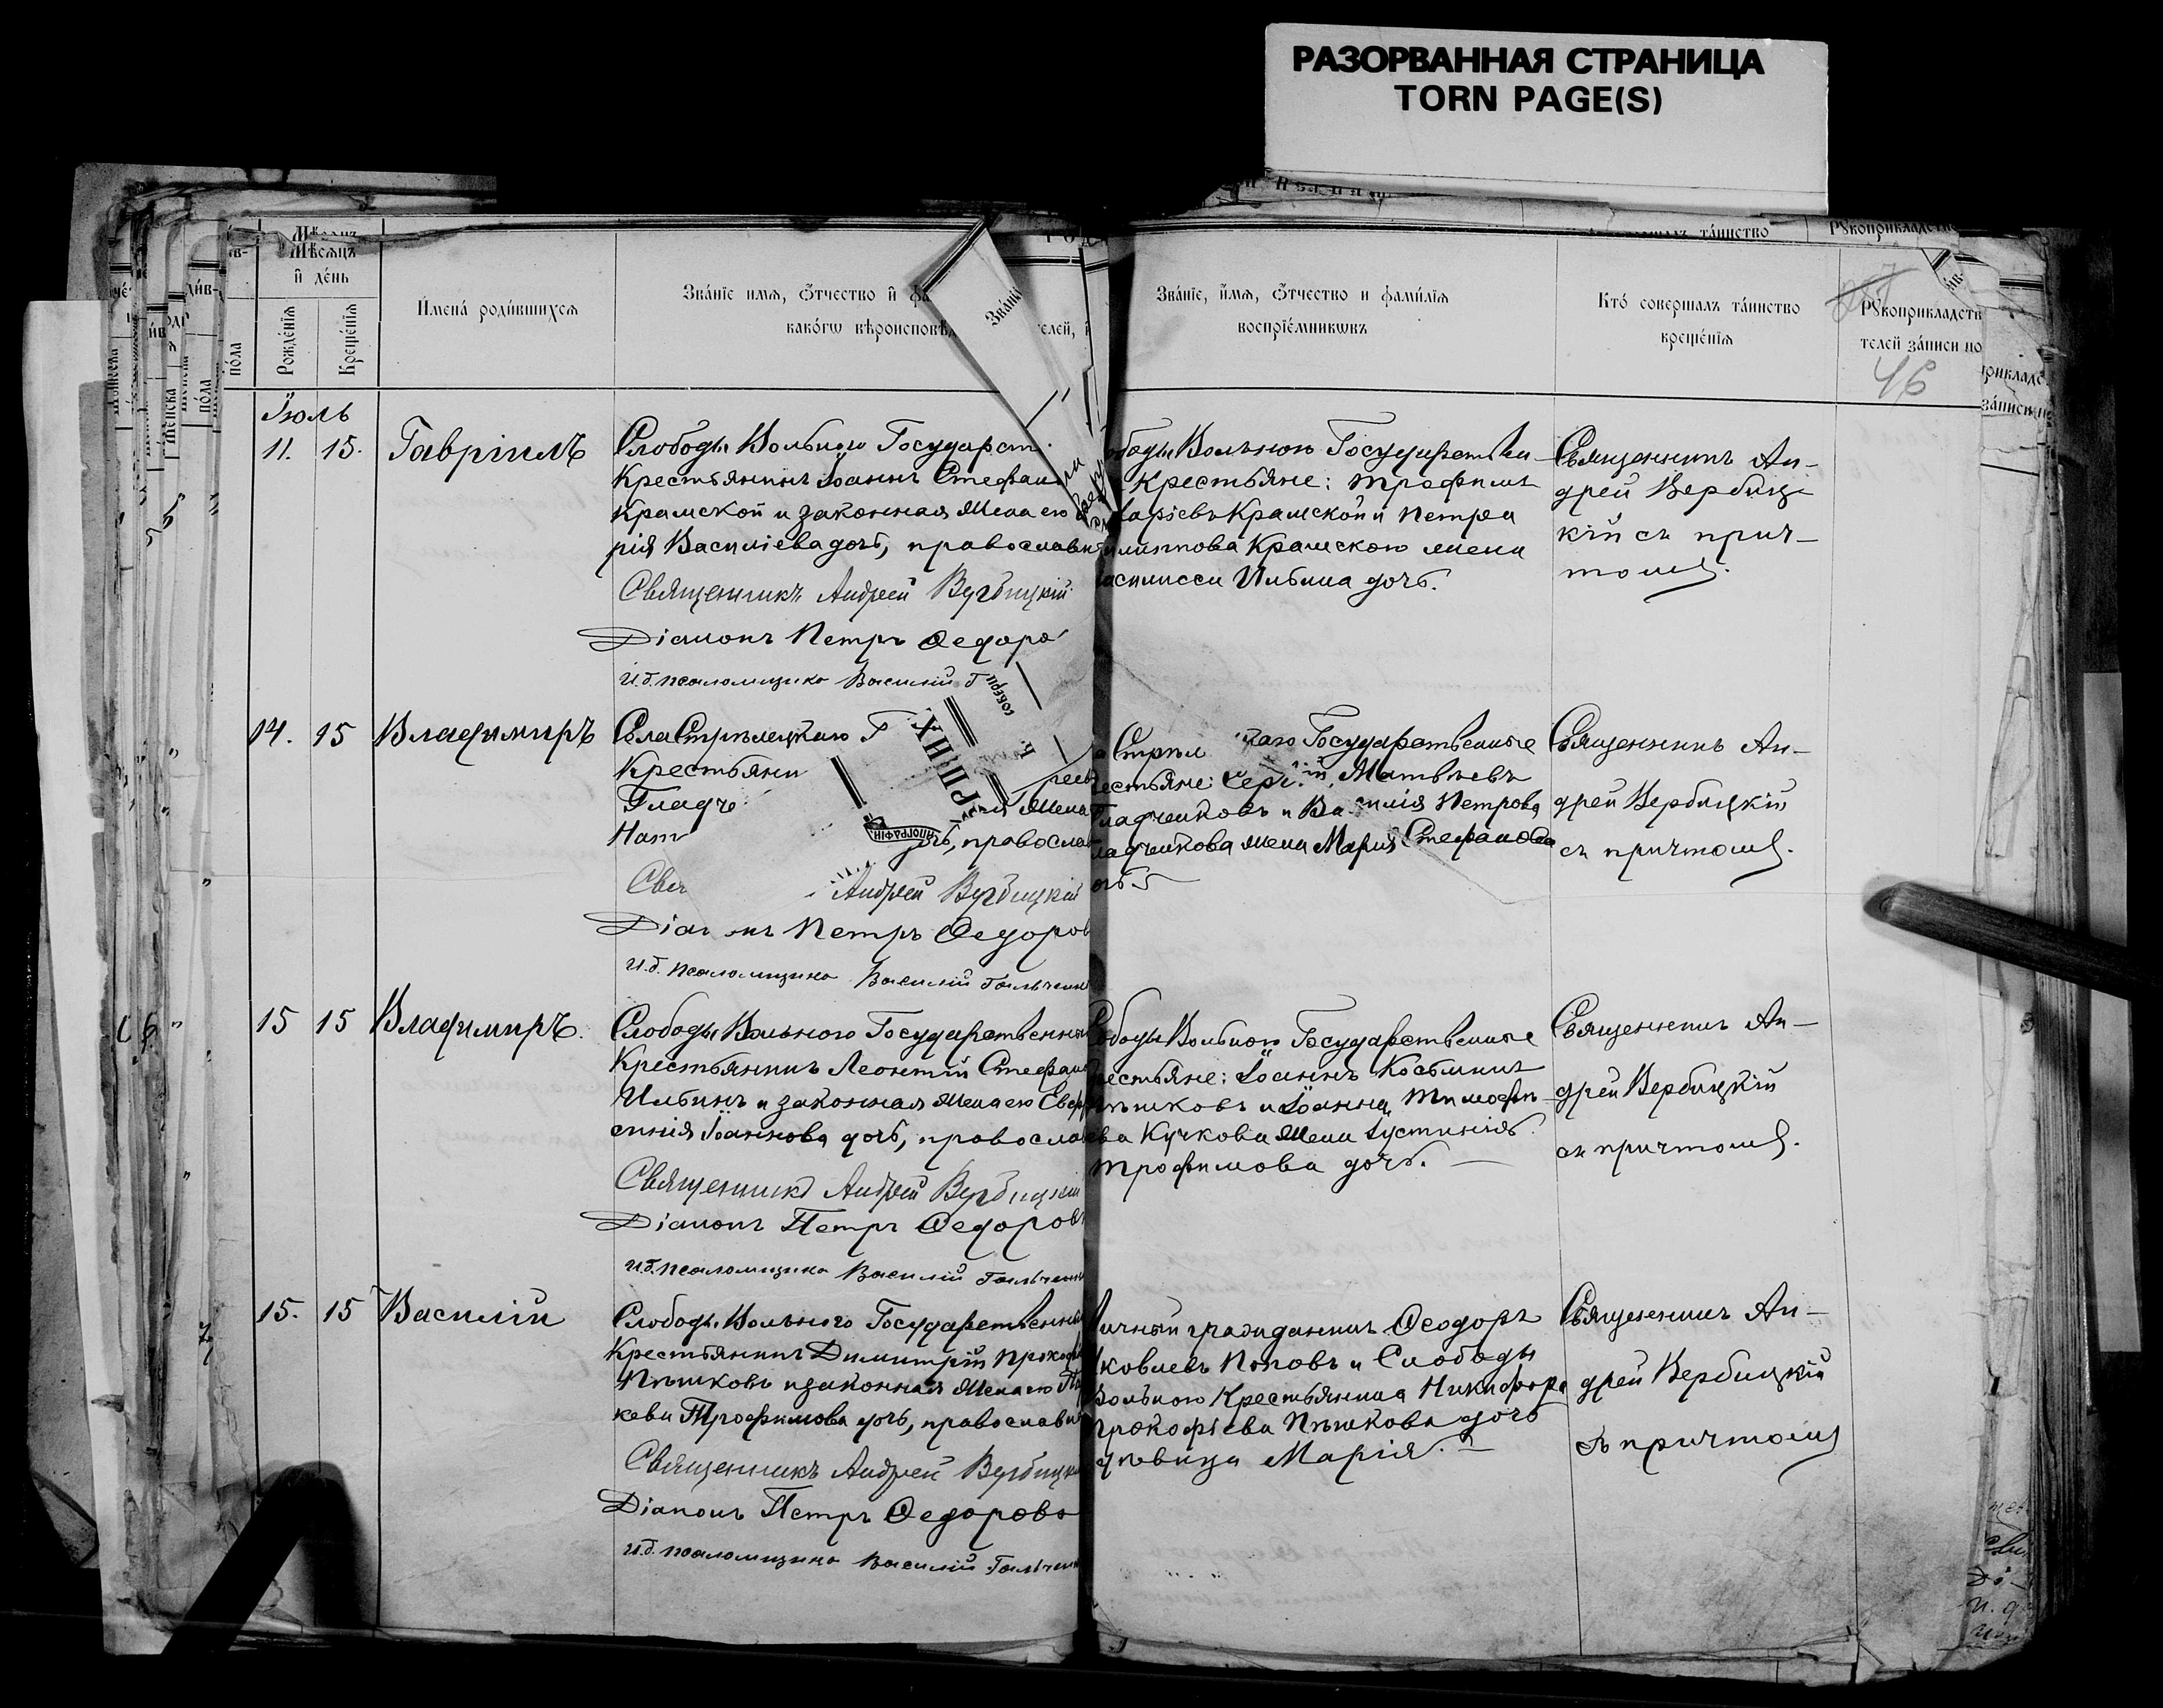 РАЗОРВАННАЯ СТРАНИЦА
TORN PAGE(S)
Мѣсяцъ
и҆ де́нь
Рожде́нїѧ
Креще́нїѧ
по́ла
И҆мена̀ роди́вшихсѧ
Зва́нїе имѧ, ѻ҆́тчество и҆
како́гѡ вѣроисповѣд
Зва́нїе, и҆́мѧ, ѻ҆́тчество и фами́лїѧ
воспрїе́мникѡвъ
Кто́ совершалъ та́инство
креще́нїѧ
Рꙋкоприкладств
телей за́писи по
46
Іюль
11. 15. Гавріилъ
Слободы Вольного Государст
Крестьянинъ Іоаннъ Стефан
Крамской и законная жена его
рія Василіева дочь, православн
Священникъ Андрей Вербицкій
Діаконъ Петръ Ѳедоро
И.д. псаломщика Василій Г
ободы Вольного Государствен-
Крестьяне: Трофимъ
Крамской и Петра
илиппова Крамского жена
Ильина дочь.
Священникъ Ан-
дрей Вербиц-
кій съ прич-
томъ.
14. 15 Владимиръ
Села Стрѣлецкаго Г
Крестьяни
Гладче
Нат
жена
дочь, православ
Андрей Вербицкій
Діа нъ Петръ Ѳедоров
И.д. псаломщика Василій Гальченк
а Стрѣл каго Государственные
естьяне: Сергій Матвѣевъ
Гладченковъ и Ва илія Петрова
ладченкова жена Марія Стефанова
очь
Священникъ Ан-
дрей Вербицкій
съ причтомъ.
15 15 Владимиръ.
Слободы Вольного Государственный
Крестьянинъ Леонтій Стефан
Ильинъ и законная жена его Евфр
синія Іоаннова дочь, православ
Священникъ Андрей Вербицкій
Діаконъ Петръ Ѳедоровъ
И.д. псаломщика Василій Гальченк
ободы Вольного Государственные
рестьяне: Іоаннъ Косьминъ
Пѣшковъ и Іоанна Тимофѣ-
ева Кучкова жена Іустинія
Трофимова дочь.
Священникъ Ан-
дрей Вербицкій
съ причтомъ.
15. 15 Василій
Слободы Вольного Государственный
Крестьянинъ Димитрій Прокоф
Пѣшковъ и законная жена его Па
кева Трофимова дочь, православн
Священникъ Андрей Вербицкій
Діаконъ Петръ Ѳедоровъ
И.д. псаломщика Василій Гальченк
ичный гражданинъ Ѳеодоръ
ковлевъ Поповъ и Слободы
Вольного Крестьянина Никифора
Прокофіева Пѣшкова дочь
дѣвица Марія.
Священникъ Ан-
дрей Вербицкій
съ причтомъ